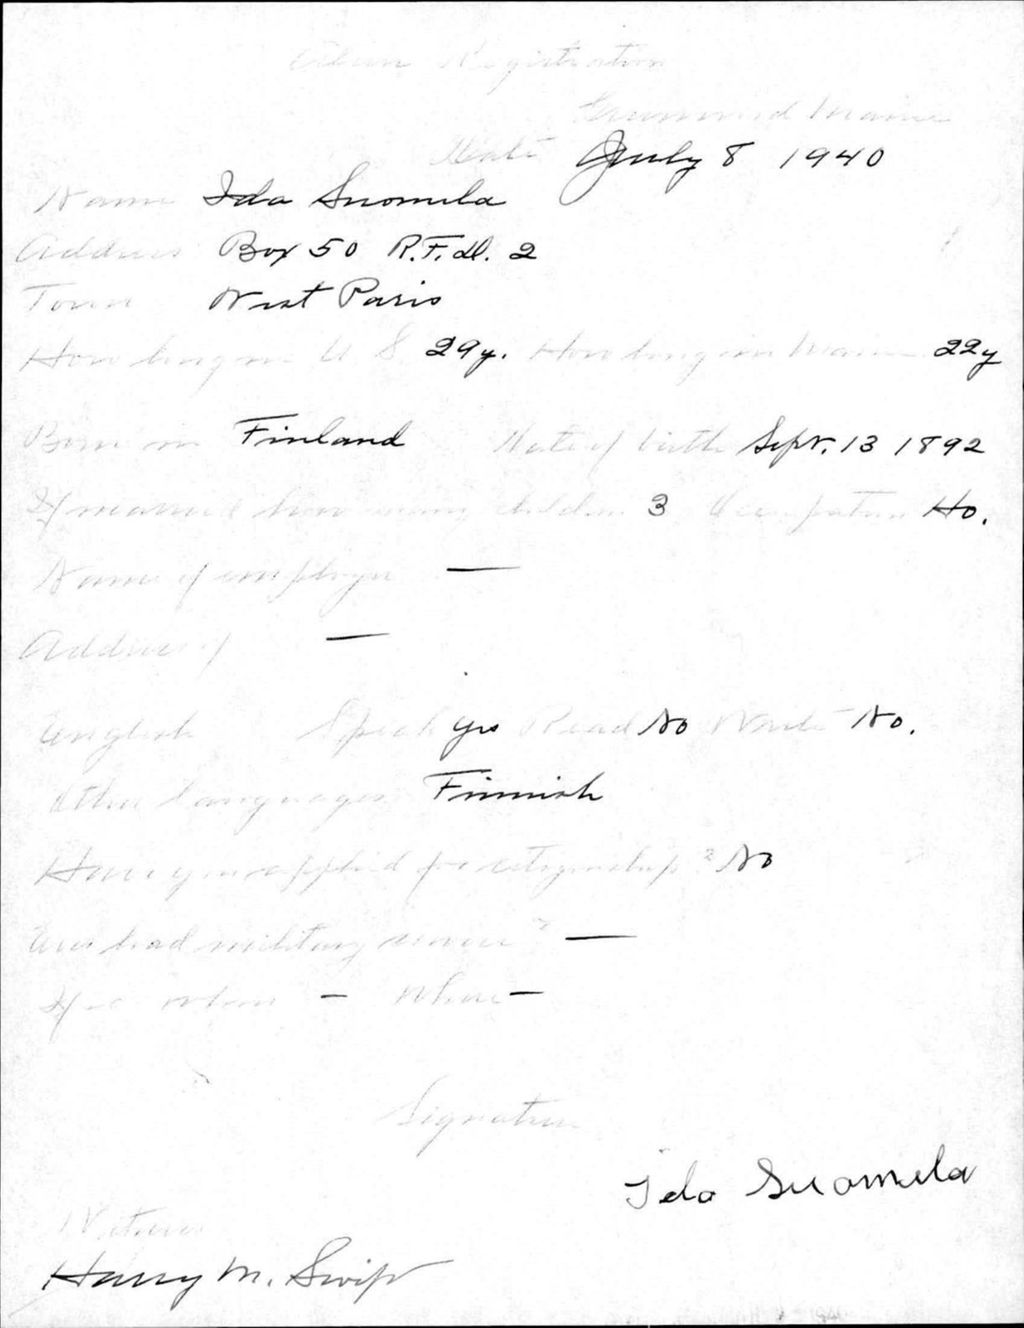 Alien Registration
Greenwood Maine
Date July 8 1940
Name Ida Suomela
Address Box 50 R.F.D. 2
Town West Paris
How long in U.S. 29y. How long in Maine 22y
Born in Finland Date of birth Sept. 13 1892
If married how many children 3 Occupation Ho.
Name of employer —
Address of —
English Speak yes Read No Write No.
Other languages Finnish
Have you applied for citizenship? No
Ever had military service? —
If so when — Where —
Signature
Ida Suomela
Witness
Harry M. Swift